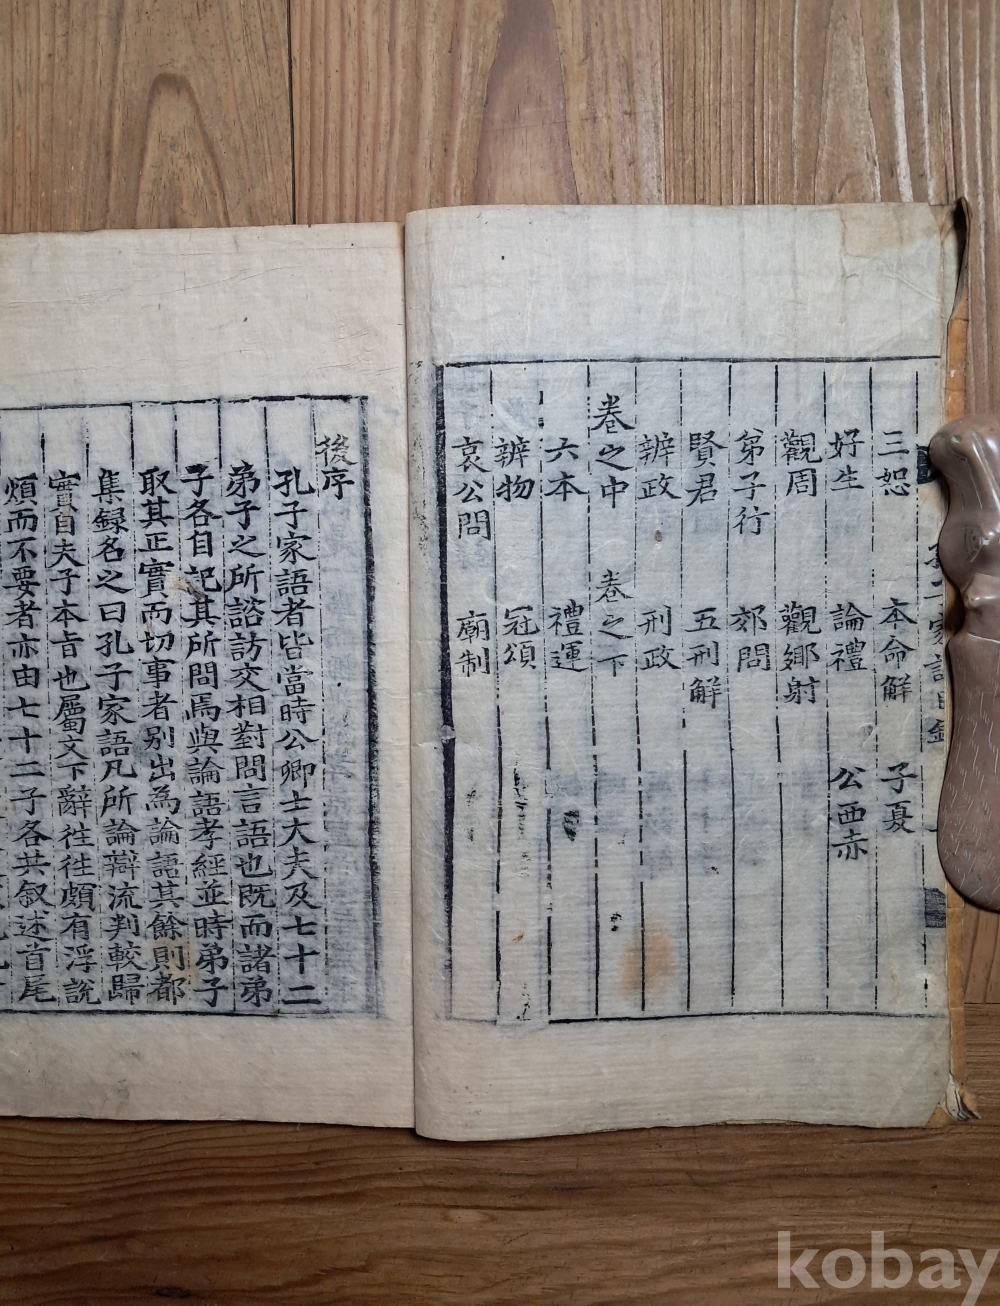 三恕 本命解 子夏
好生 論禮 公西赤
觀周 觀鄉射
弟子行 郊問
賢君 五刑解
辨政 刑政
卷之中 卷之下
六本 禮運
辨物 冠頌
哀公問 廟制
後序
孔子家語者皆當時公卿士大夫及七十二
弟子之所諮訪交相對問言語也既而諸弟
子各自記其所問焉與論語孝經並時弟子
取其正實而切事者別出為論語其餘則都
集録名之曰孔子家語凡所論辯流判較歸
實自夫子本旨也屬文下辭徃徃頗有浮說
煩而不要者亦由七十二子各共叙述首尾
kobay